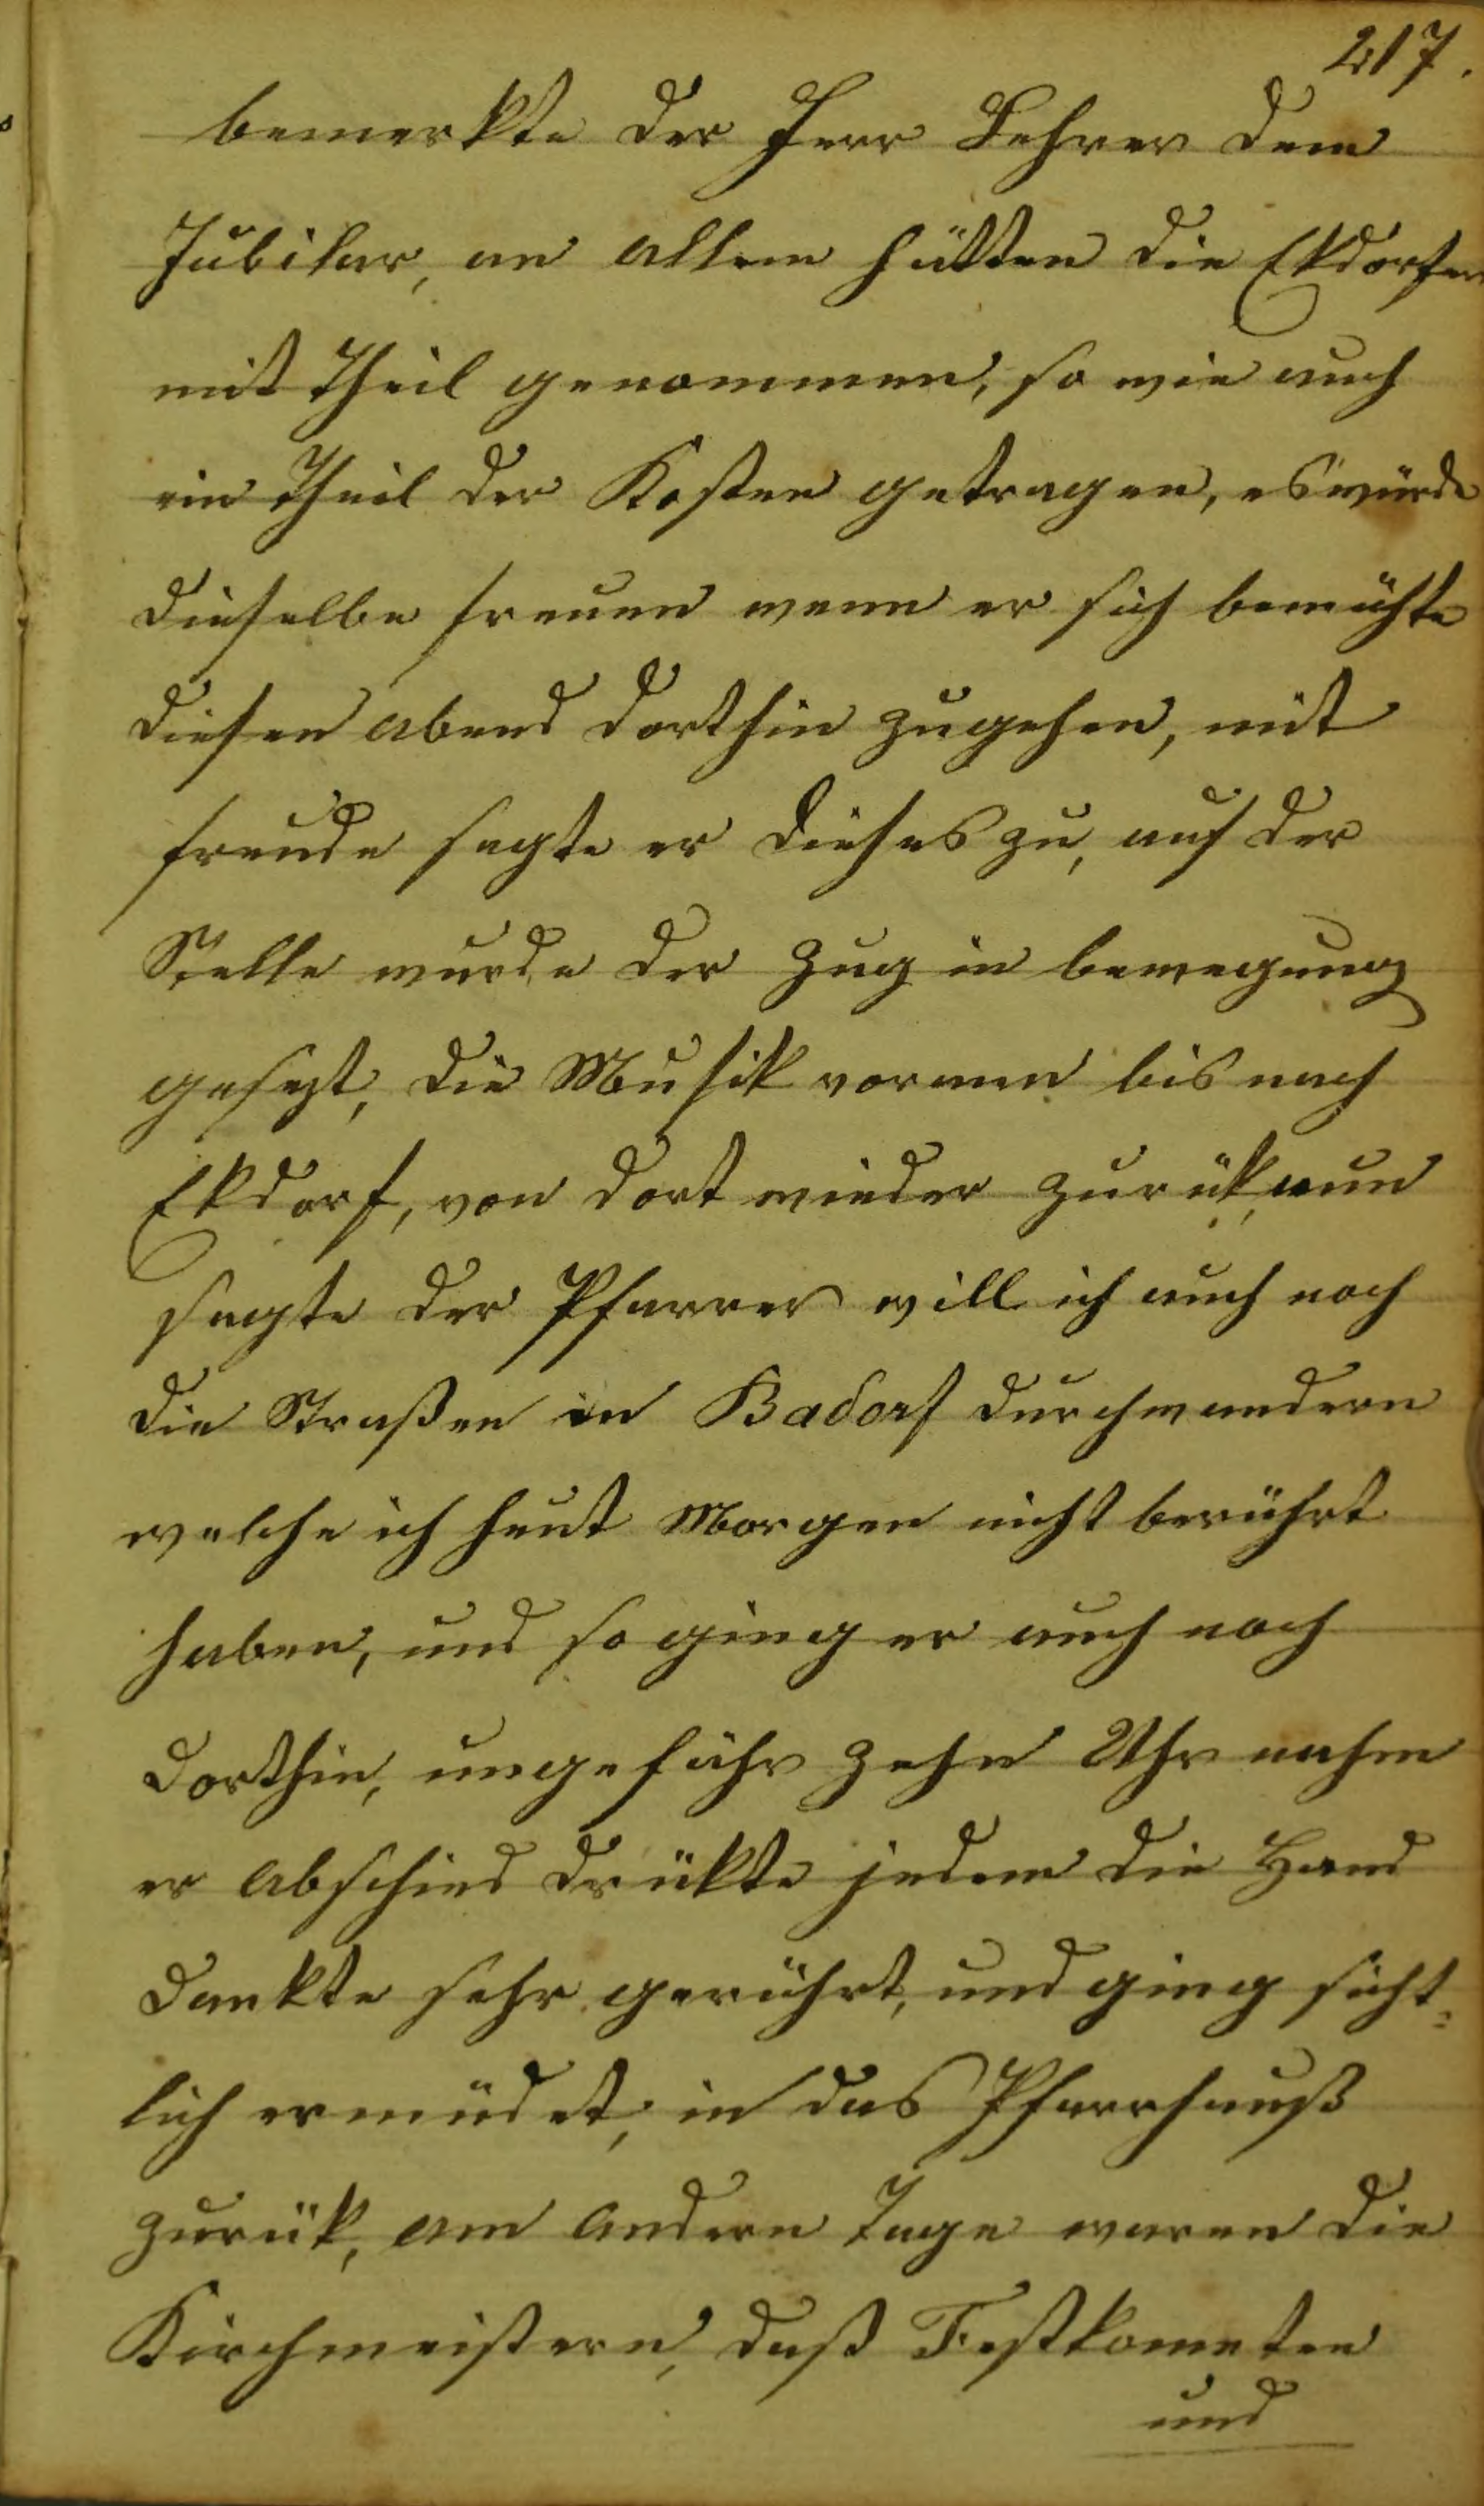 217.
bemerkte der Herr Lehrer dem
Jubilar, an allem hätten die Ekdorfer
mit Theil genommen, so wie auch
ein Theil der Kosten getragen, es würde
dieselbe freuen wenn er sich bemühte
diesen abend dorthin zugehen, mit
freude sagte er dieses zu, auf der
Stelle wurde der Zug in bewegung
gesezt, die Musik voran bis nach
Ekdorf, von dort wieder zurük, nun
sagte der Pfarrer will ich auch noch
die Straßen in Badorf durchwandern
welche ich heut Morgen nicht berührt
haben, und so ging er auch noch
dorthin, ungefähr zehn Uhr nahm
er abschied drükte jedem die Hand
dankte sehr gerührt, und ging sicht=
lich ermüdet, in das Pfarrhauß
zurük, am andern Tage waren die
Kirchmeistern, daß Festkometen
und